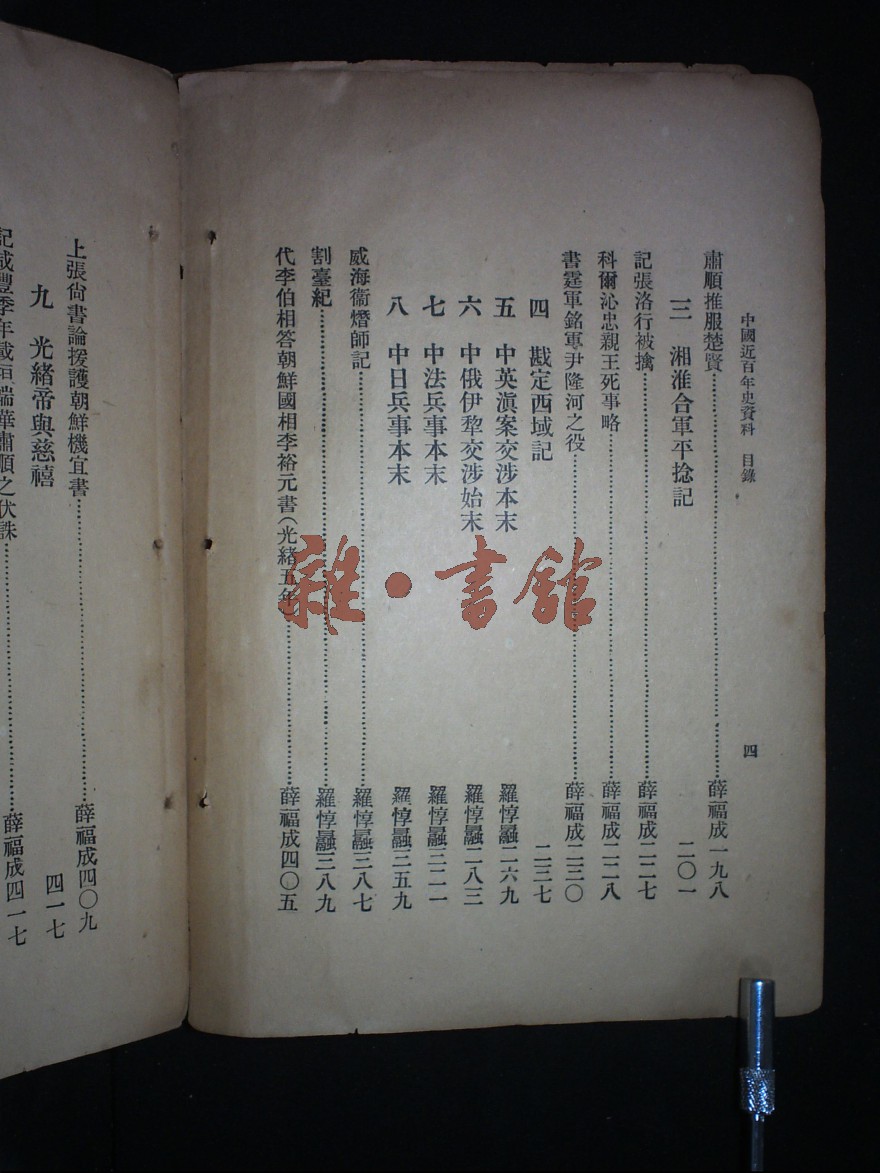 中國近百年史資料　目錄
四
肅順推服楚賢……薛福成一九八
三　湘淮合軍平捻記　二〇一
記張洛行被擒……薛福成二二七
科爾沁忠親王死事略……薛福成二二八
書霆軍銘軍尹隆河之役……薛福成二三〇
四　戡定西域記　二三七
五　中英滇案交涉本末　羅惇曧二六九
六　中俄伊犂交涉始末　羅惇曧二八三
七　中法兵事本末　羅惇曧三二一
八　中日兵事本末　羅惇曧三五九
威海衞熸師記……羅惇曧三八七
割臺紀……羅惇曧三八九
代李伯相答朝鮮國相李裕元書(光緒五年)……薛福成四〇五
上張尙書論援護朝鮮機宜書……薛福成四〇九
九　光緒帝與慈禧　四一七
記咸豐季年載垣端華肅順之伏誅……薛福成四一七
雜·書館